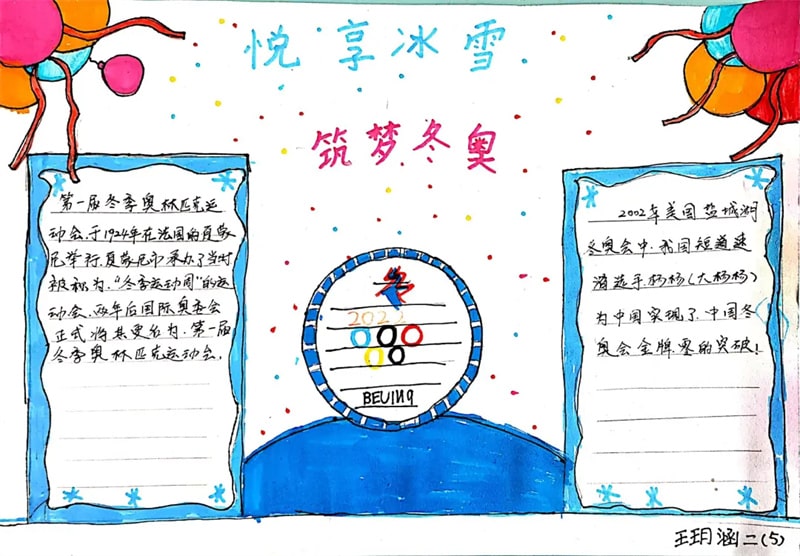 悦享冰雪
筑梦冬奥
第一届冬季奥林匹克运
动会，于1924年在法国的夏蒙
尼举行，夏蒙尼市承办了当时
被称为"冬季运动周"的运
动会，两年后国际奥委会
正式将其更名为，第一届
冬季奥林匹克运动会。
冬
2022
BEIJING
2002年美国盐城湖
冬奥会中，我国短道速
滑选手杨杨（大杨杨）
为中国实现了，中国冬
奥会金牌零的突破！
王玥涵二(5)